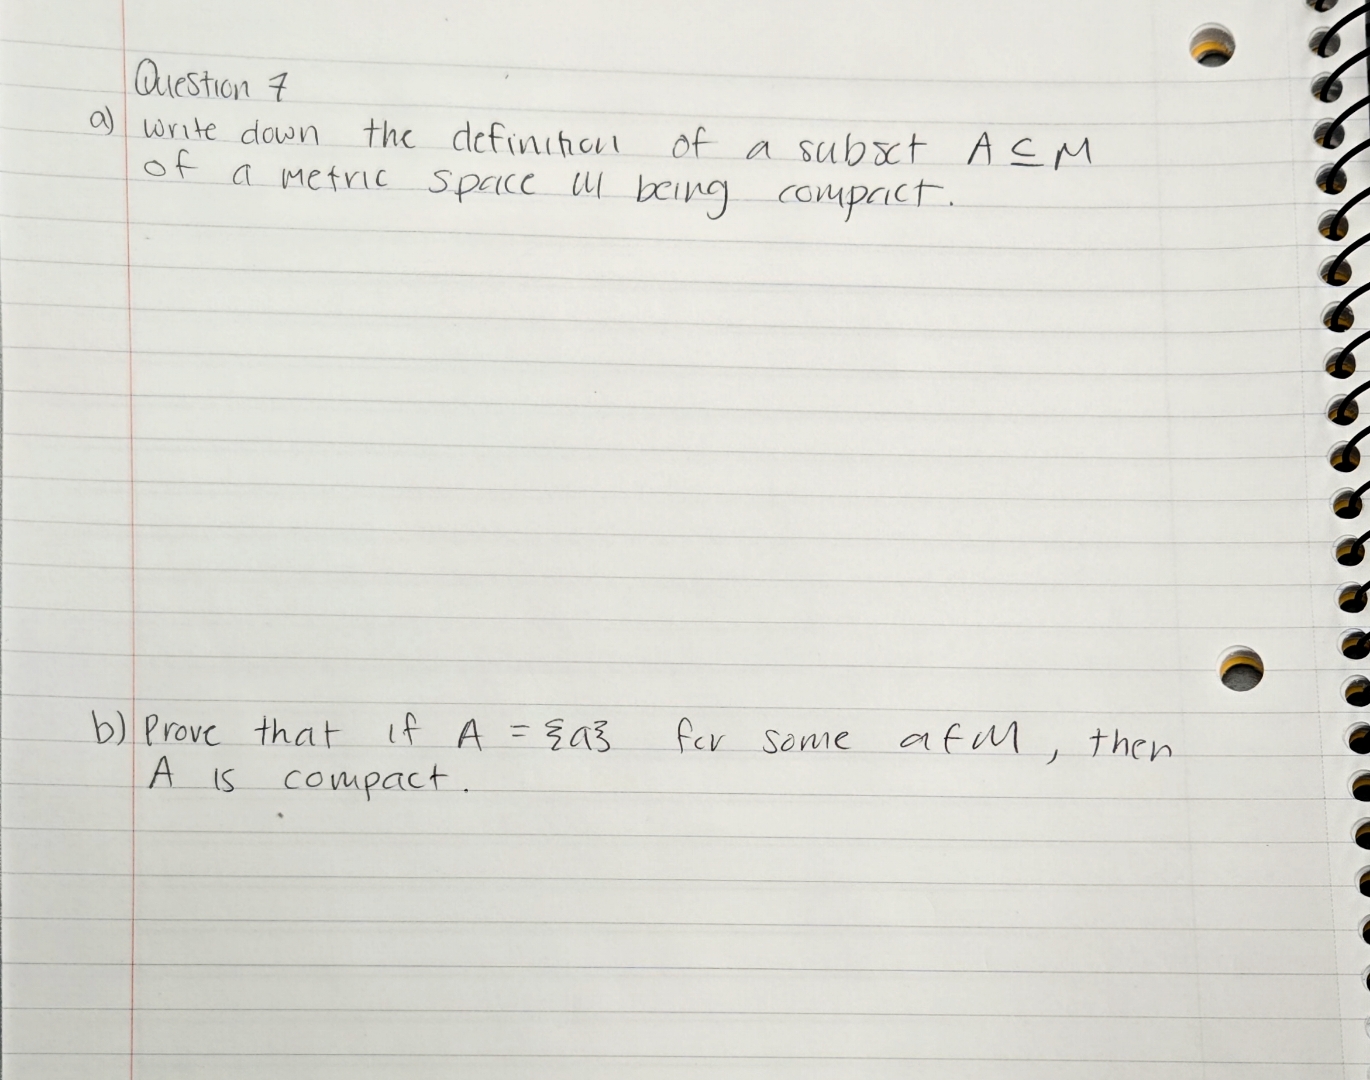 Question 7
a) Write down the definition of a subset A ⊆ M
of a metric space M being compact.
b) Prove that if A = {a} for some a ∈ M, then
A is compact.